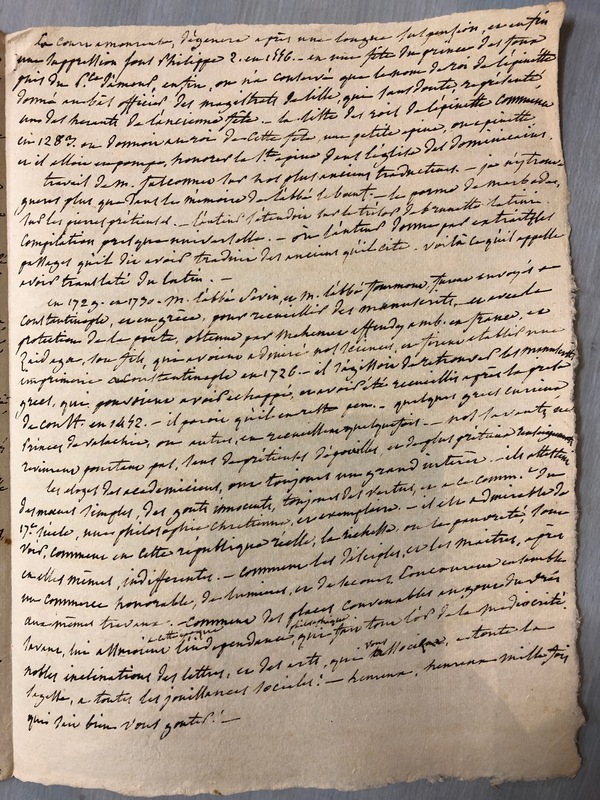 la cour amoureuse, dégénere après une longue suspension, et enfin
une suppression sous Philippe 2. en 1556. – en une fête du prince des foux
puis du P.ce d'amour, enfin, on n'a conservé que le nom de roi de l'epinette
donné au bas officier des magistrats de lille, qui sans doute, représenté
un des herauts de l'ancienne fête. – la liste des rois de l'epinette commence
en 1283, on donnoit au roi de cette fête, une petite epine, ou epinette,
et il alloit en pompe, honorer la S.te epine dans l'église des dominicains.
travail de m. falconnet sur nos plus anciens traducteurs. – je n'y trouve
gueres plus que dans le memoire de l'abbé lebeuf. – le poeme de marbodus,
sur les pierres prétieuses. – l'auteur s'étend sur le trésor de brunetto latini.
Compilation presque universelle. – où l'auteur donne par extrait les
passages qu'il dit avoir traduit des anciens qu'il cite. voilà ce qu'il appelle
avoir translaté du latin. –
en 1729. en 1730. m. l'abbé Sevin, et m. l'abbé fourmont, furent envoyés a
Constantinople, et en grèce, pour recueillir des manuscrits, – et avec la
protection de la porte, obtenue par Mehemet effendy amb. en france, et
Zaid aga, son fils, qui avoient admiré nos sciences, et firent établir une
imprimerie a Constantinople en 1726. – il s'agissoit de retrouver les manuscrits
grecs, qui pouvoient avoir échappé, et avoir été recueillis après la prise
de Const. en 1452. – il paroit qu'il en reste peu. – quelques grecs curieux
Princes de valachie, ou autres, en recueillent quelquefois. – nos savants ne
revinrent pourtant pas, sans de prétieuses dépouilles, et de plus prétieux
les eloges des academiciens, ont toujours un grand intérêt. – ils attestent
des mœurs simples, des gouts innocents, toujours des vertus, et a ce comm.t du
17.e siecle, une philosophie chretienne, et exemplaire. – il est admirable de
voir, comment en cette république réelle, la richesse, ou la pauvreté, sont
en elles mêmes, indifferentes. – comment les disciples, et les maitres, après
un commerce honorable, de lumieres, et de secours, concourent ensemble
aux mêmes travaux. – comment des places convenables au gout du vrai
savant, lui assuroient l'independance philosophique qui fait tout l'or de la mediocrité.
nobles inclinations des lettres, et des arts, qui vous associent, a toute la
sagesse, a toutes les jouissances sociales! – heureux, heureux mille fois
qui sait bien vous gouter! –